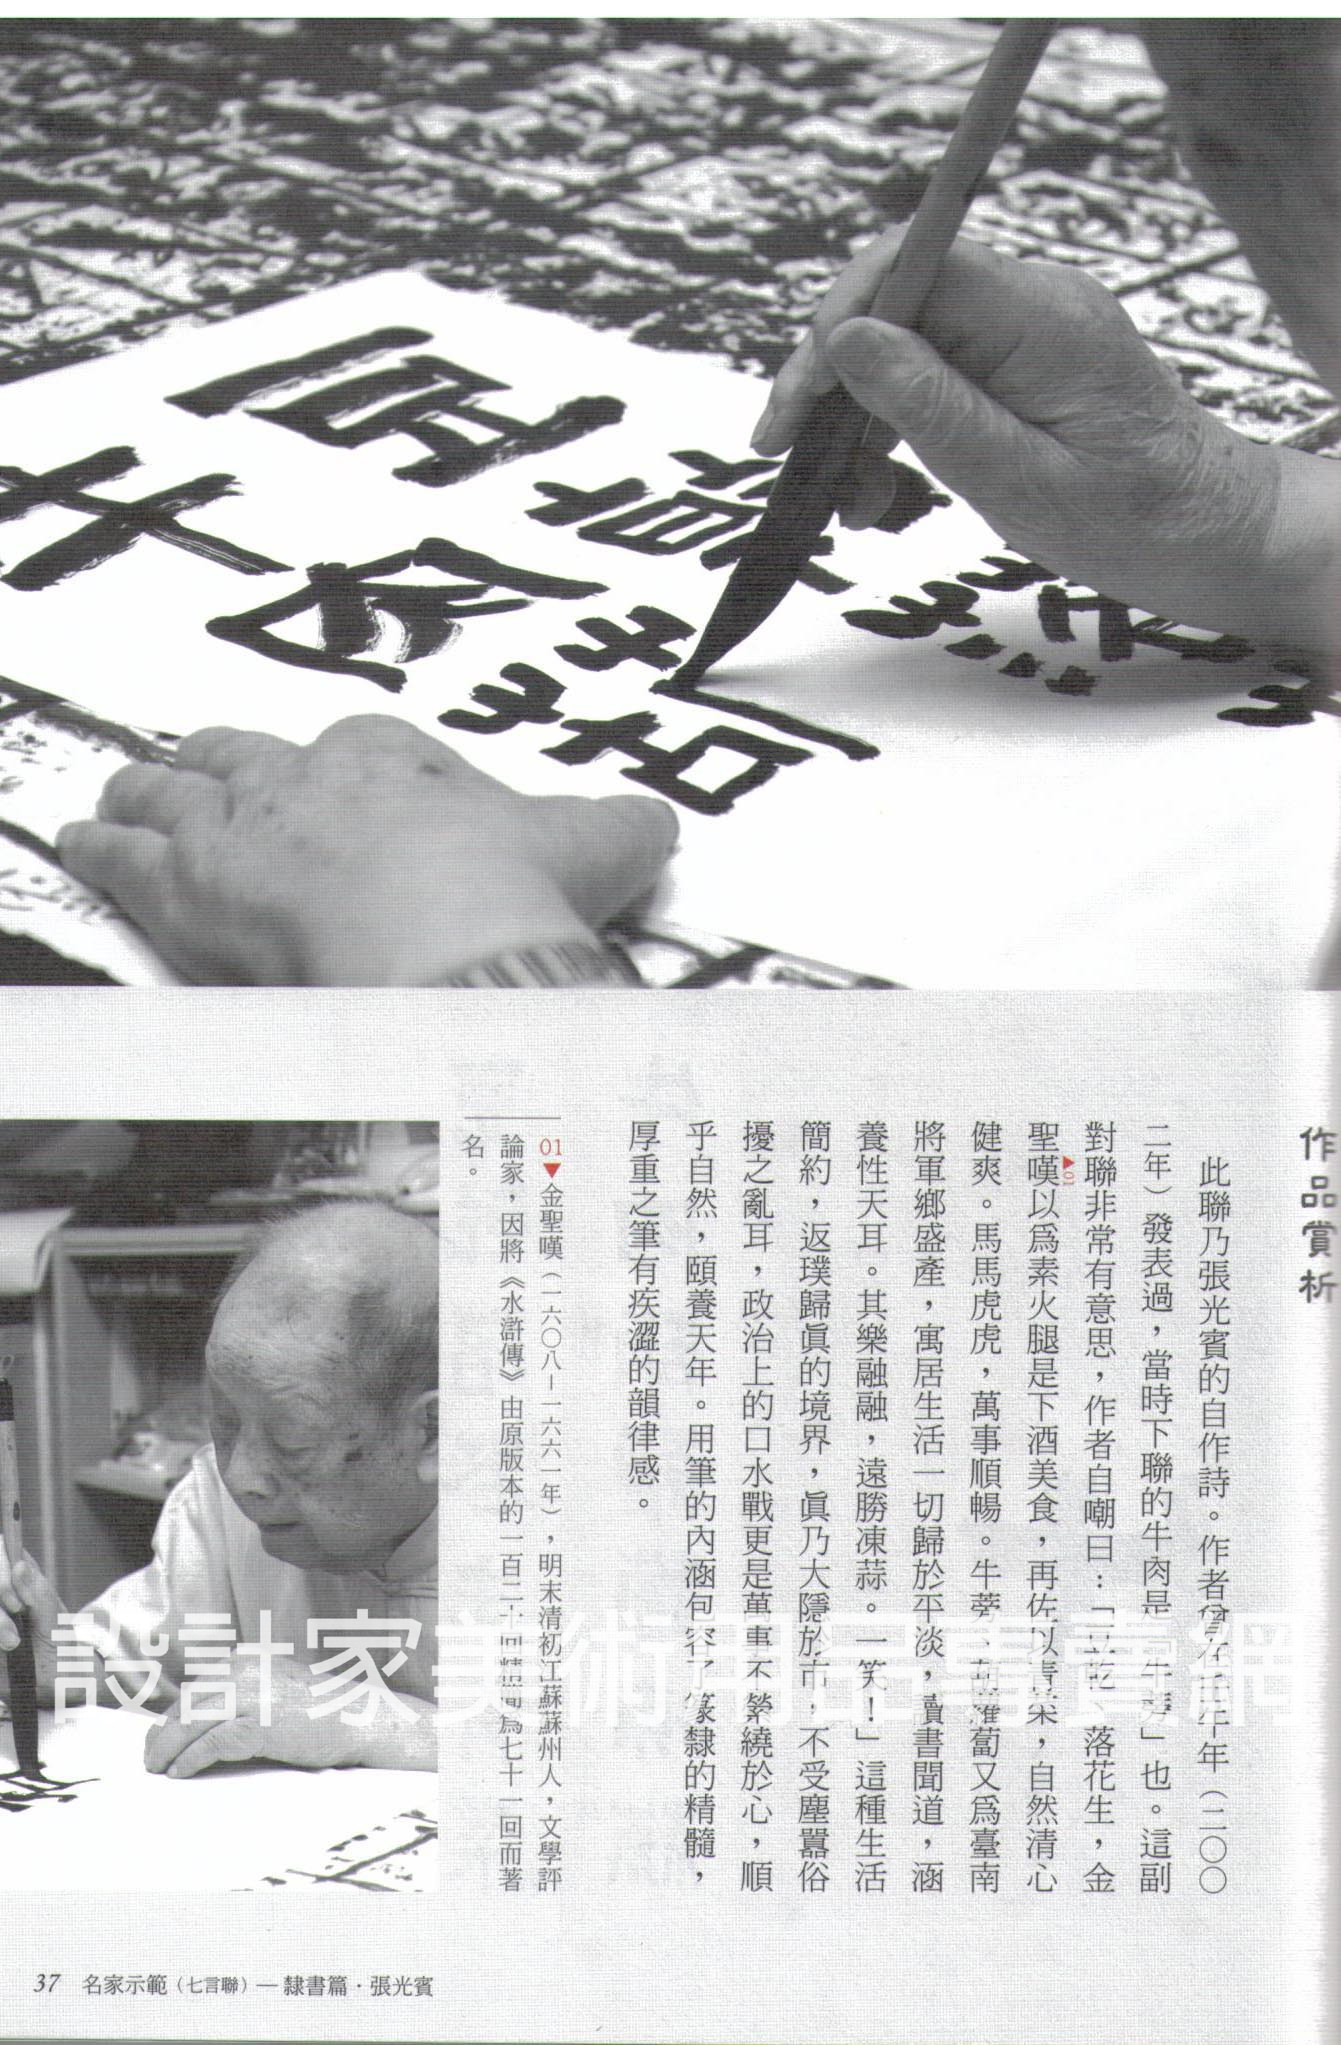 作品賞析
此聯乃張光賓的自作詩。作者曾在壬午年（二〇〇
二年）發表過，當時下聯的牛肉是「牛蒡」也。這副
對聯非常有意思，作者自嘲曰：「豆乾、落花生，金
聖嘆▶01以爲素火腿是下酒美食，再佐以青菜，自然清心
健爽。馬馬虎虎，萬事順暢。牛蒡、胡蘿蔔又爲臺南
將軍鄉盛產，寓居生活一切歸於平淡，讀書聞道，涵
養性天耳。其樂融融，遠勝凍蒜。一笑！」這種生活
簡約，返璞歸眞的境界，眞乃大隱於市，不受塵囂俗
擾之亂耳，政治上的口水戰更是萬事不縈繞於心，順
乎自然，頤養天年。用筆的內涵包容了篆隸的精髓，
厚重之筆有疾澀的韻律感。
01▼金聖嘆（一六〇八－一六六一年），明末清初江蘇蘇州人，文學評
論家，因將《水滸傳》由原版本的一百二十回精簡爲七十一回而著
名。
設計家美術用品專賣網
37 名家示範（七言聯）— 隸書篇・張光賓